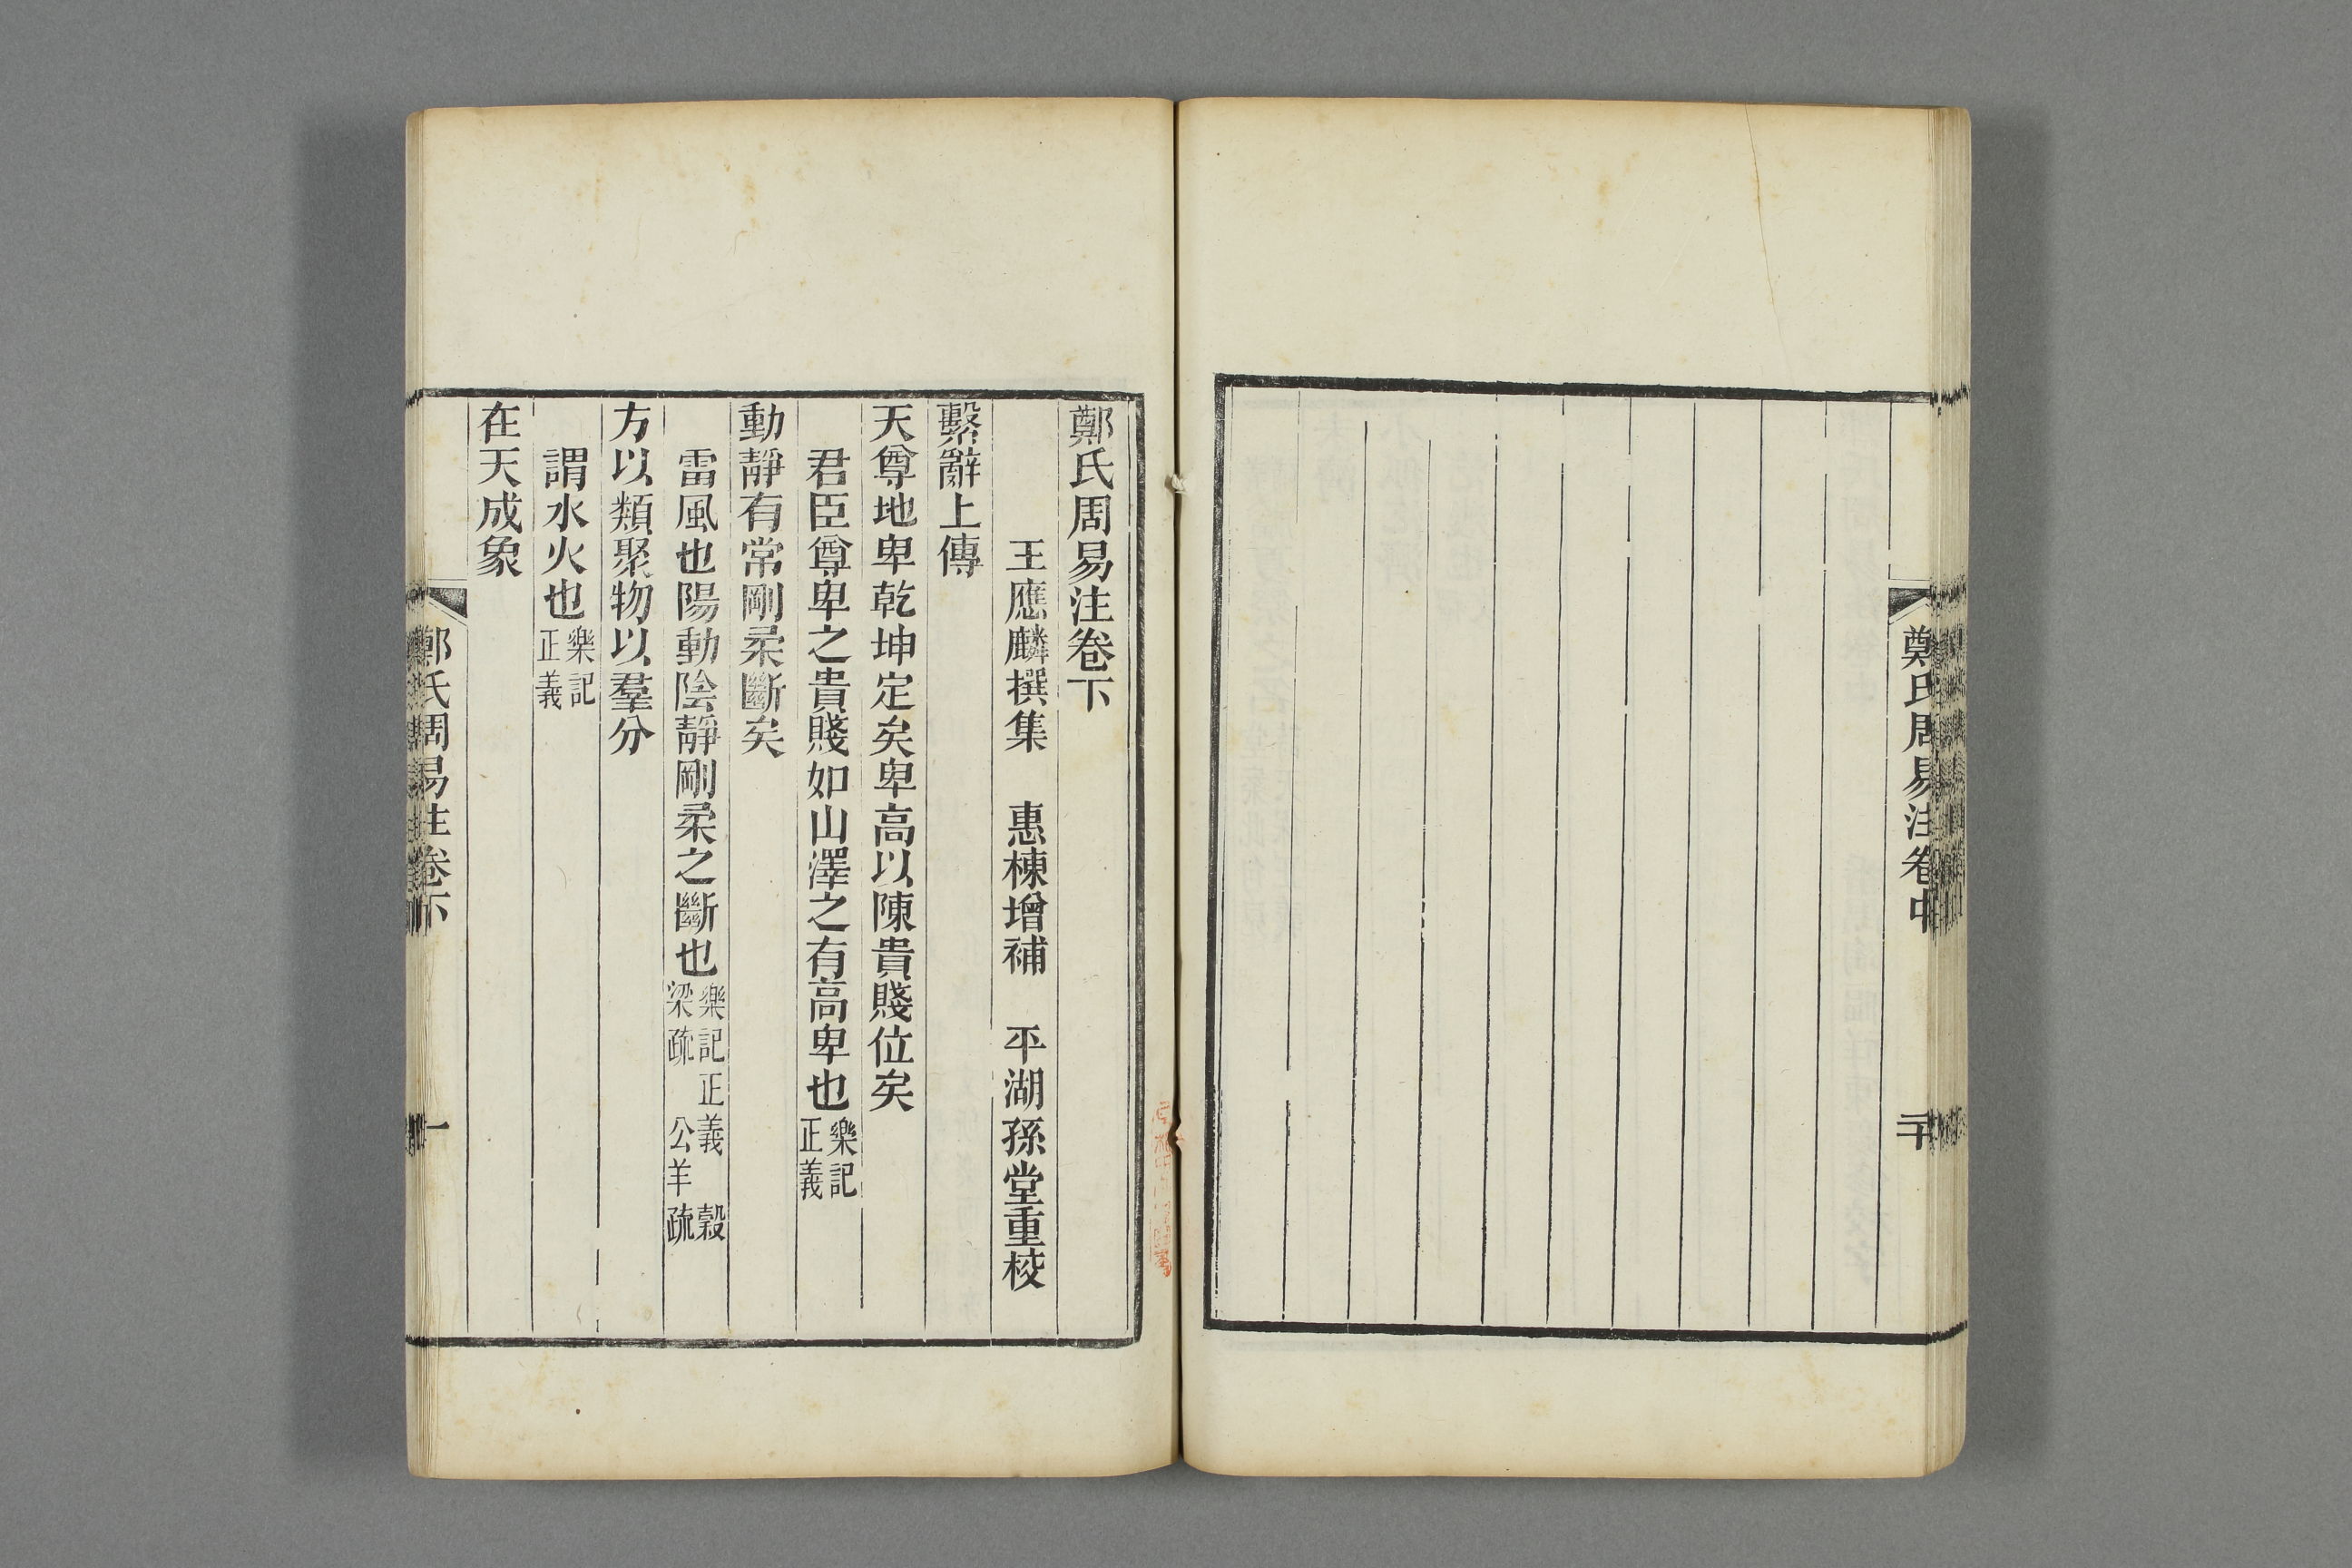 鄭氏周易注卷中
二十
鄭氏周易注卷下
王應麟撰集　惠棟增補　平湖孫堂重校
繫辭上傳
天尊地卑乾坤定矣卑高以陳貴賤位矣
君臣尊卑之貴賤如山澤之有高卑也樂記正義
動靜有常剛柔斷矣
雷風也陽動陰靜剛柔之斷也樂記正義　穀梁疏　公羊疏
方以類聚物以羣分
謂水火也樂記正義
在天成象
鄭氏周易注卷下
一